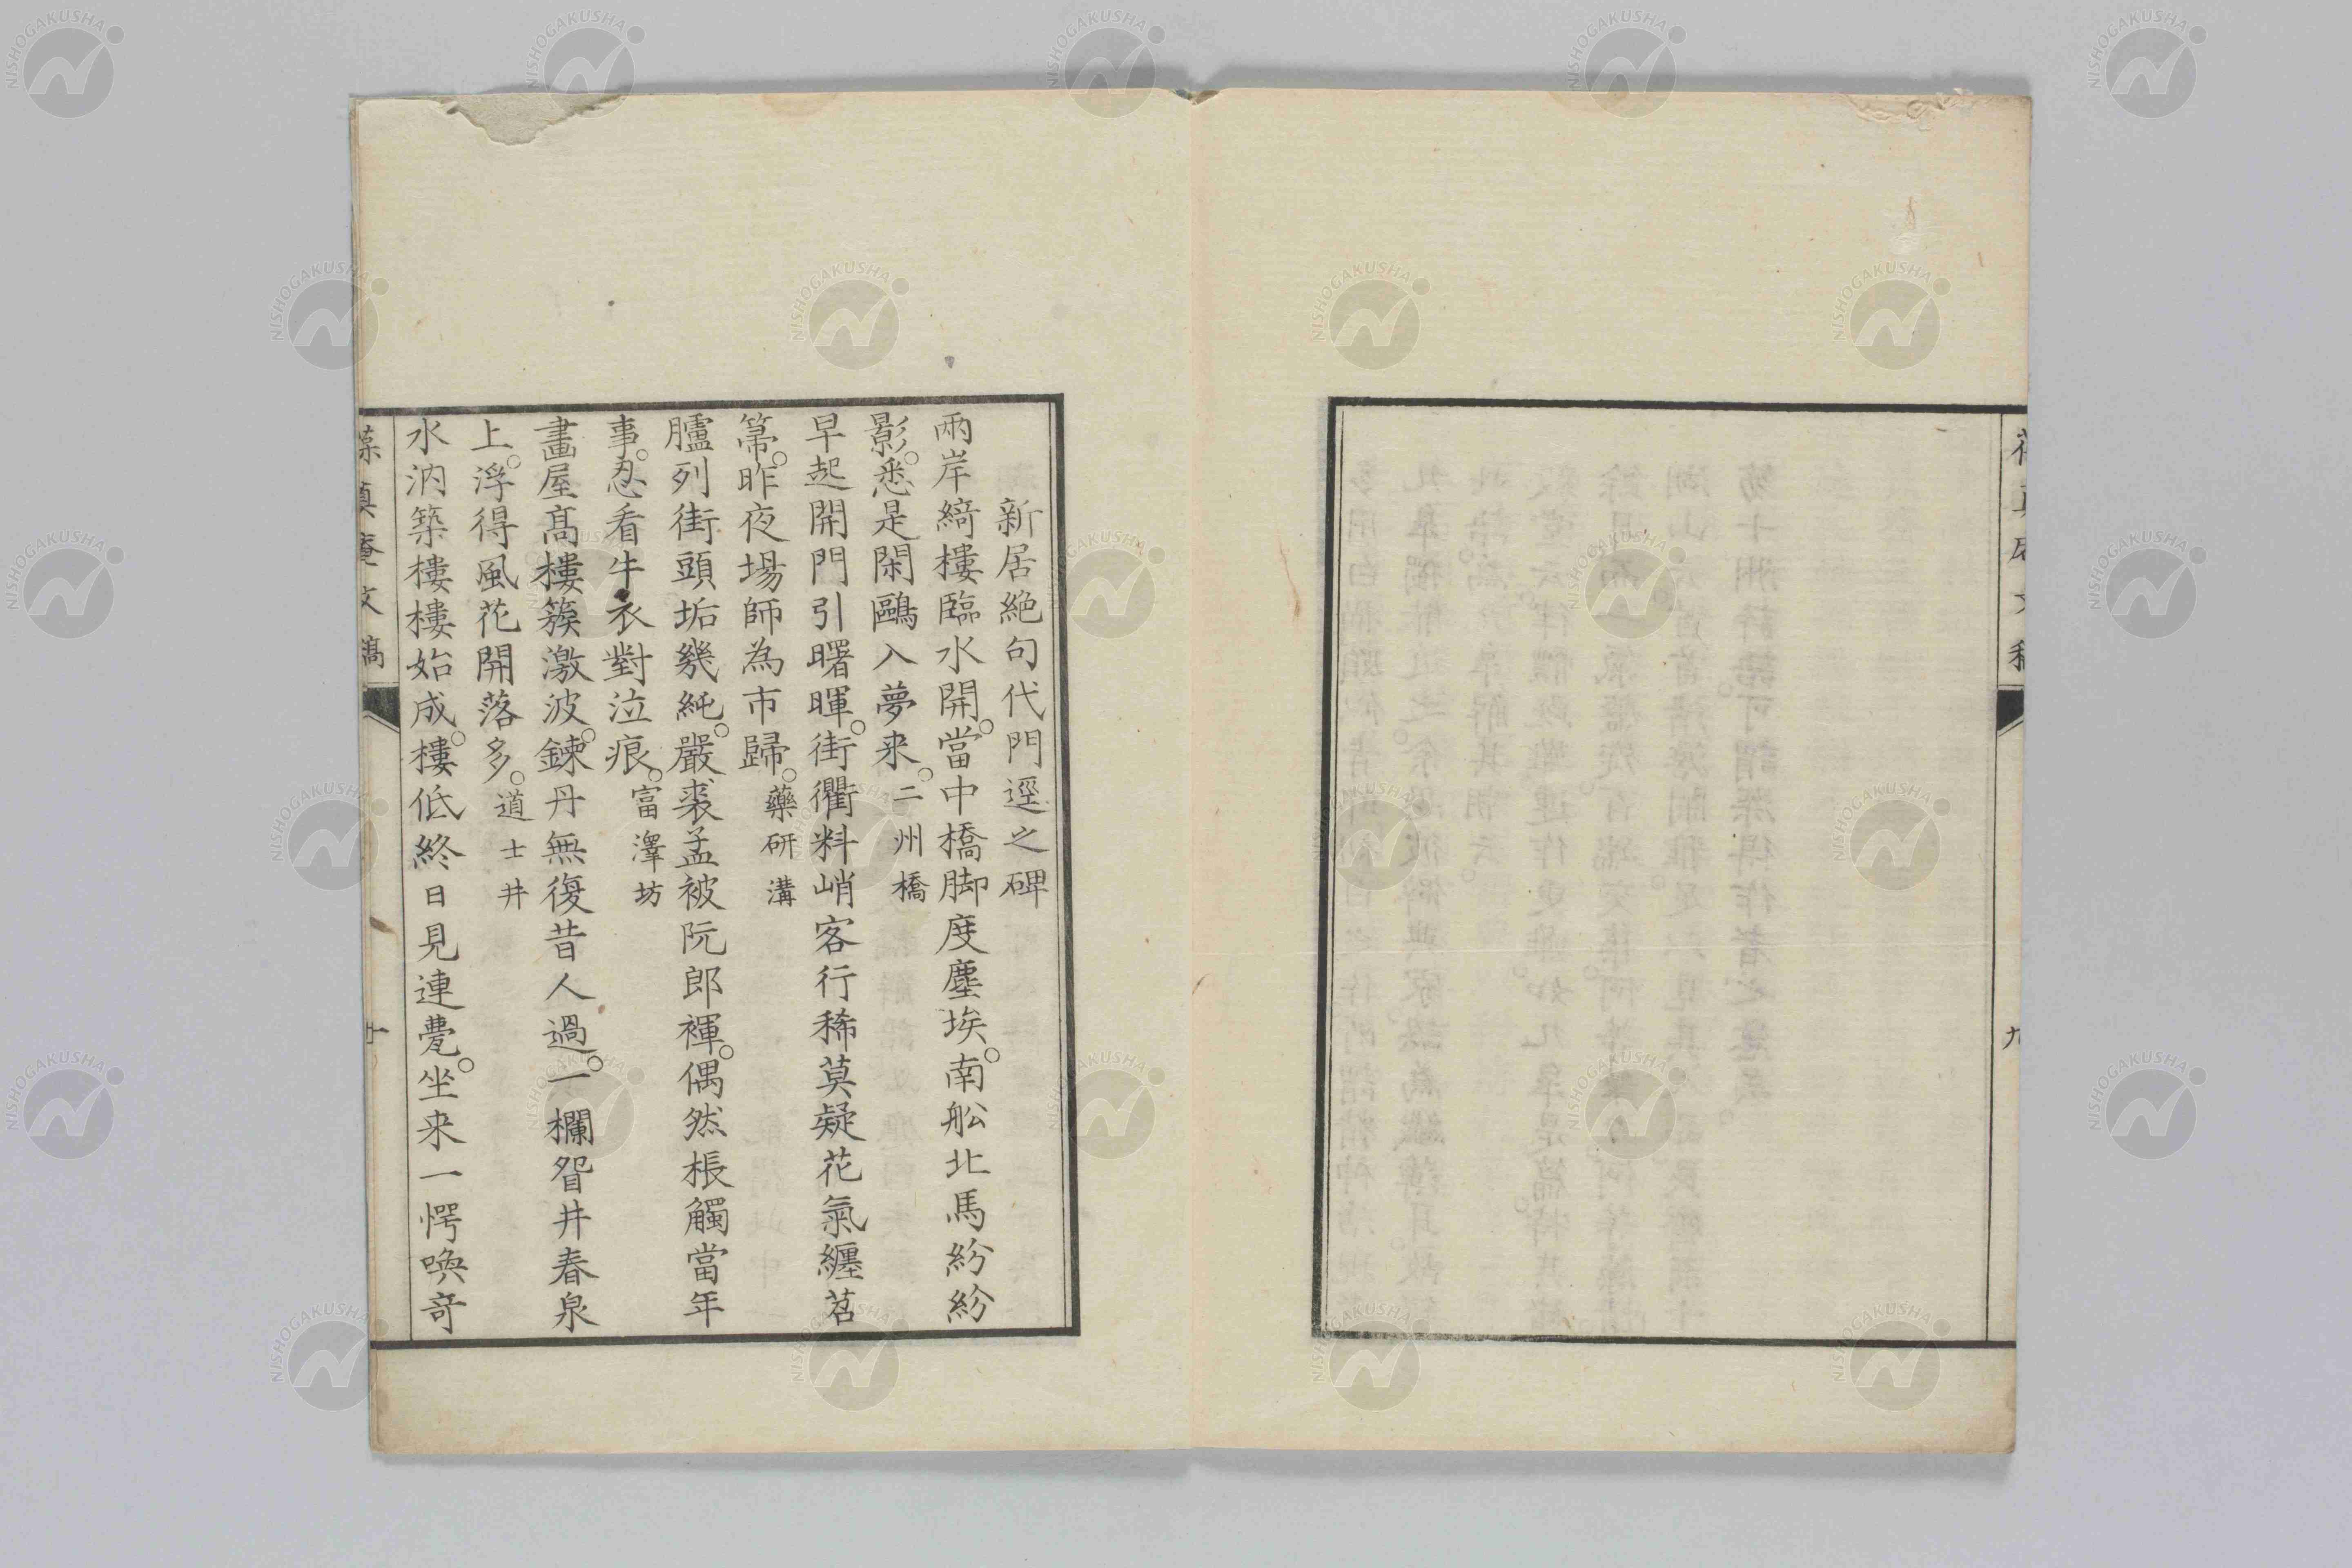 新居絶句代門逕之碑
兩岸綺樓臨水開。當中橋脚度塵埃。南舩北馬紛紛
影。悉是閑鷗入夢来。二州橋
早起開門引曙暉。街衢料峭客行稀莫疑花氣纏苕
箒。昨夜場師為市歸。藥研溝
臚列街頭垢幾純。嚴裘孟被阮郎褌。偶然棖觸當年
事。忍看牛衣對泣痕。富澤坊
畫屋高樓簇激波。鍊丹無復昔人過。一欄眢井春泉
上。浮得風花開落多。道士井
水汭築樓樓始成。樓低終日見連甍。坐来一愕喚奇
葆真庵文稿
十
九
NISHOGAKUSHA